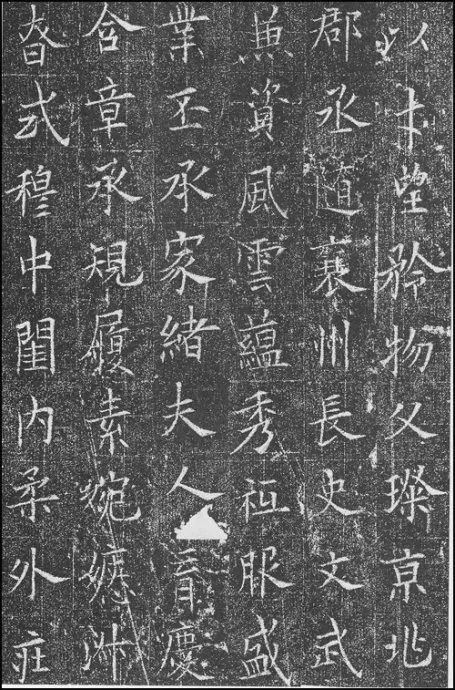 以才望矜物父璨京兆
郡丞随襄州長史文武
兼資風雲蘊秀祗服盛
業丕承家緒夫人育慶
含章承規履素婉嫕淑
昚式穆中閨内柔外庄